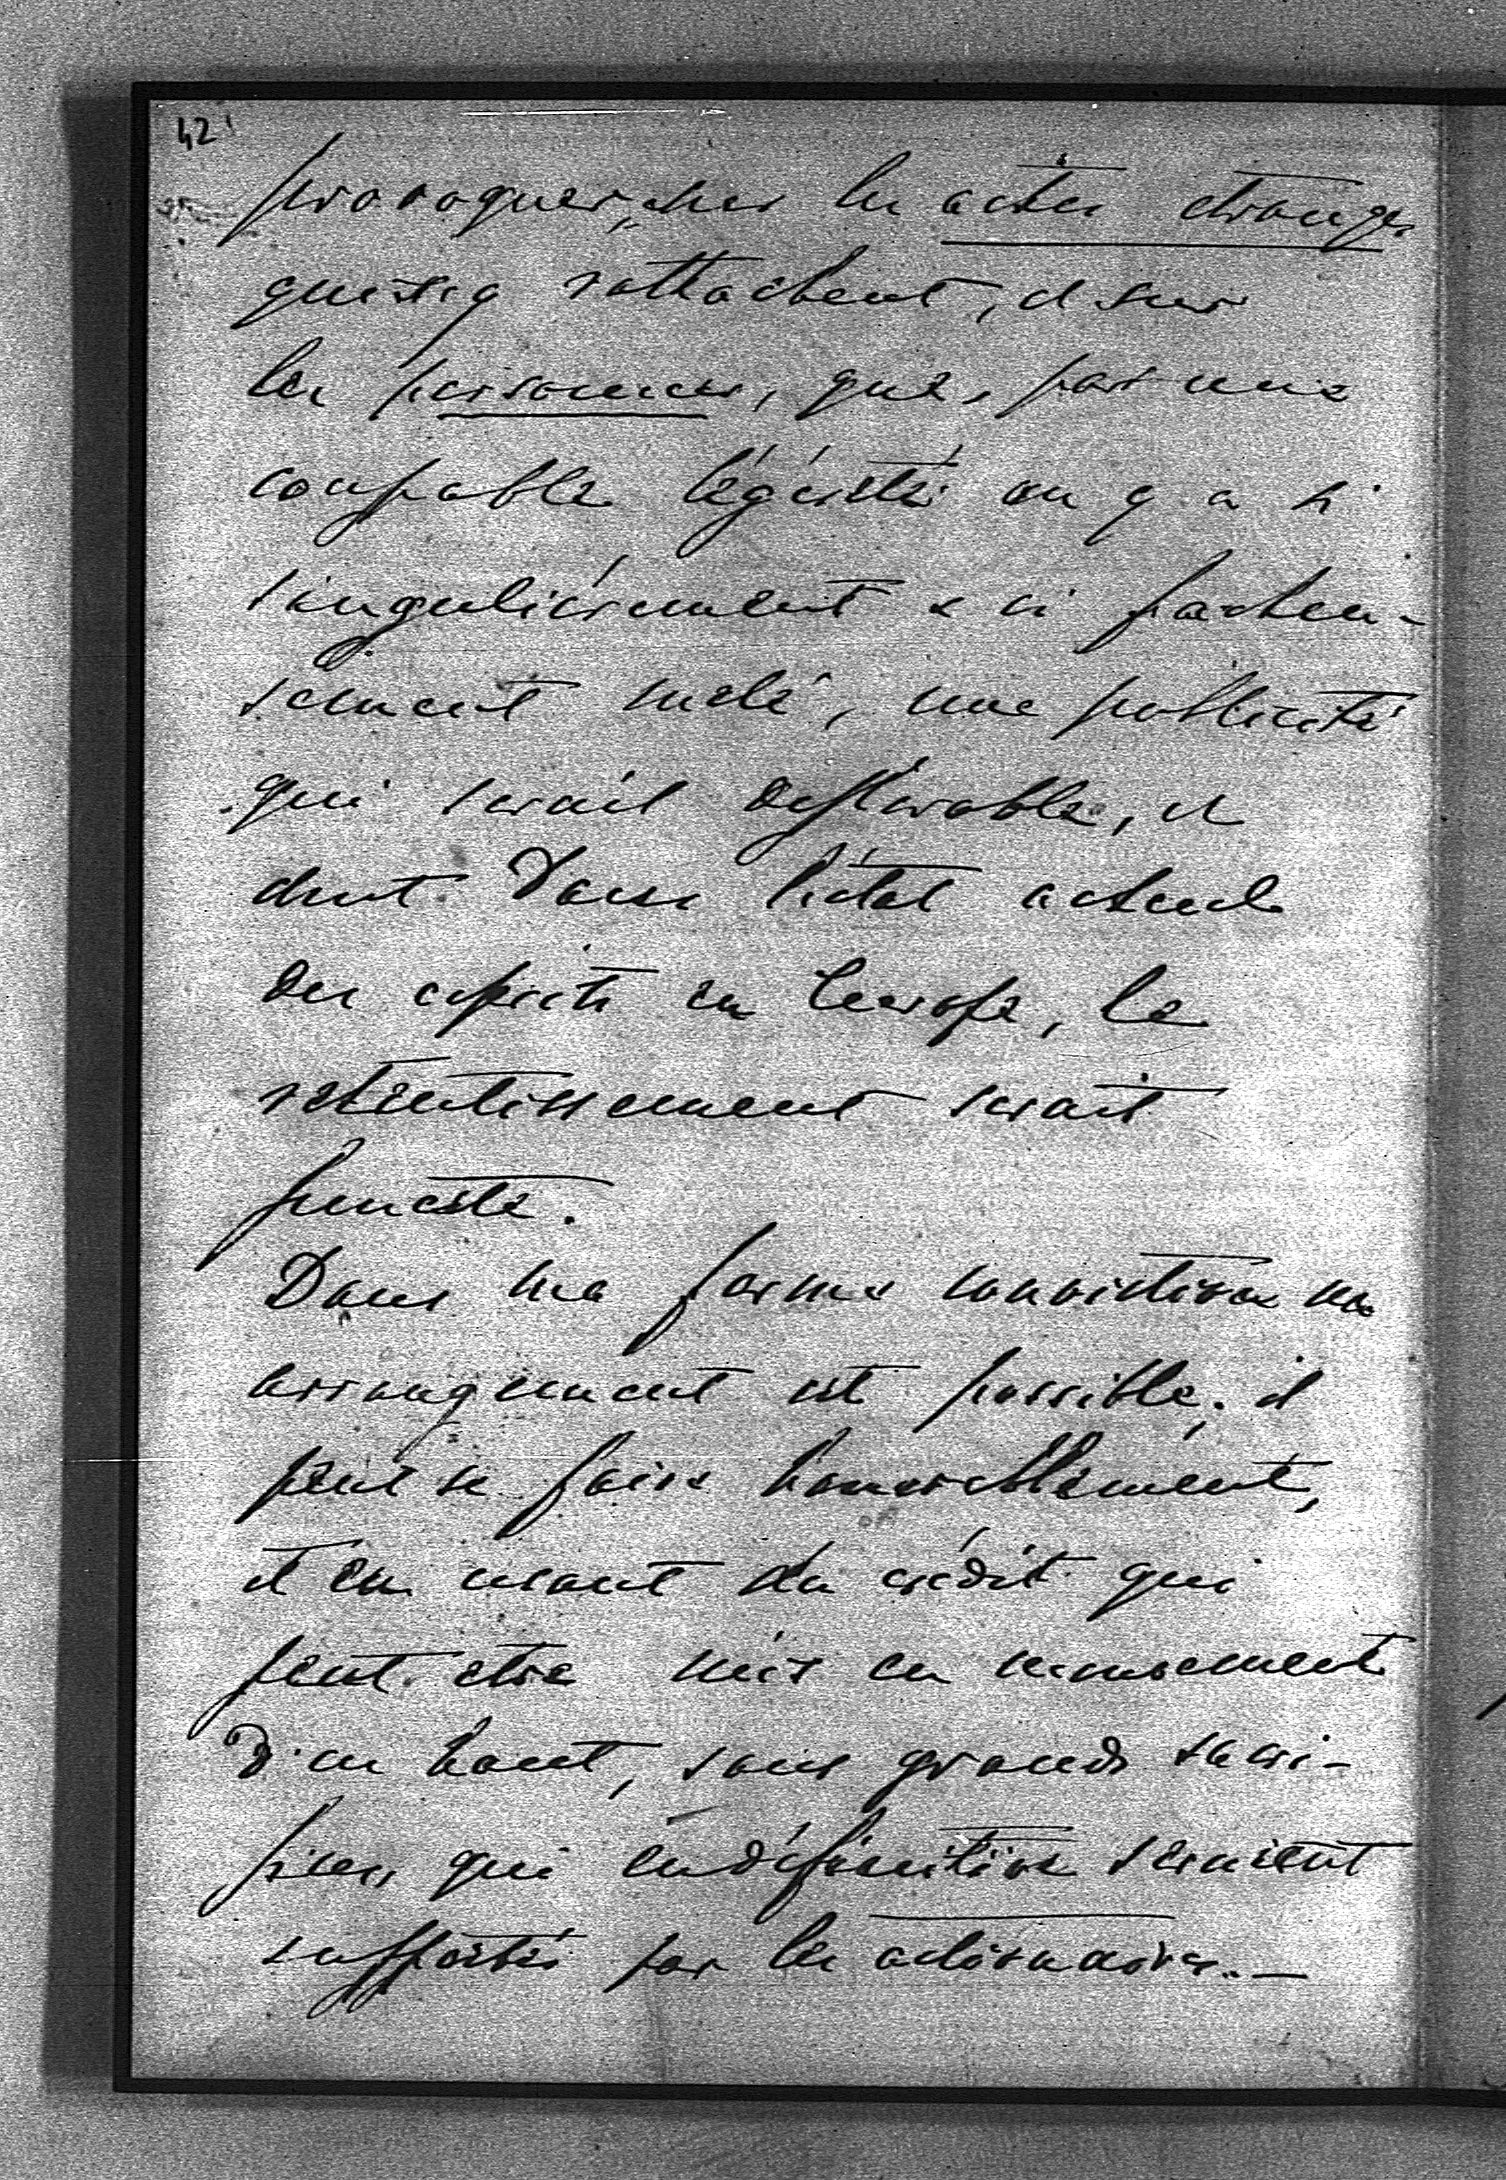 42'
provoquer, sur les actes étranges
qui s'y rattachent, et sur
les personnes, que, par une
coupable légèreté on y a si
singulièrement & si facheu-
sement mélé, une publicité
qui serait déplorable, et
dont dans l'état actuel
des esprits en Europe, le
retentissement serait
funeste.
Dans ma ferme conviction un
arrangement est possible; il
peut se faire honorablement,
et en usant du crédit qui
peut être mis en mouvement
d'en haut, sans grands sacri-
fices, qui en définitive seraient
supportés par les actionaires. —